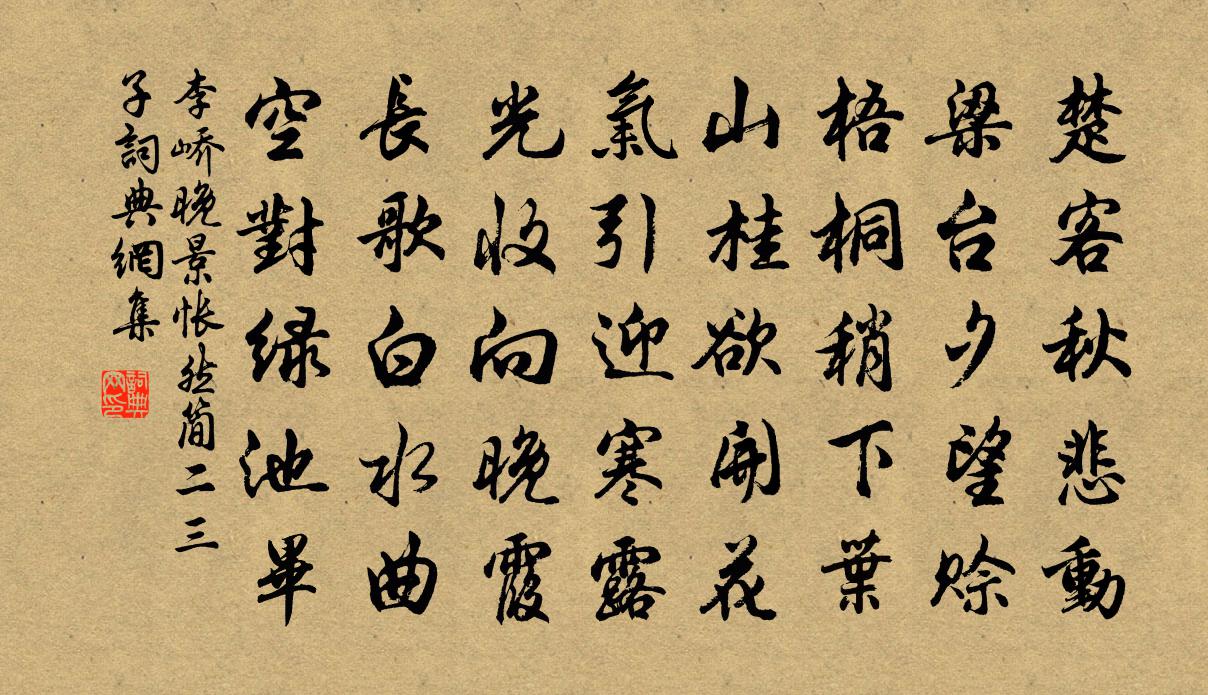 楚客秋悲動
梁台夕望賒
梧桐稍下葉
山桂欲開花
氣引迎寒露
光收向晚霞
長歌白水曲
空對綠池畢
李嶠晚景悵然簡二三
子詞典網集
詞典